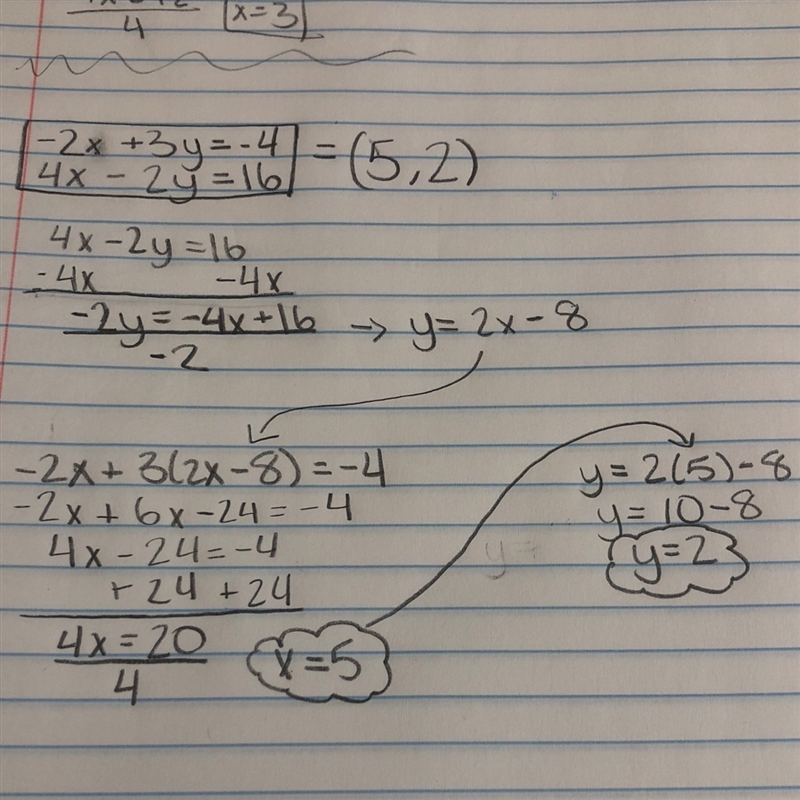 4 x=3
-2x +3y=-4
4x - 2y=16 = (5,2)
4x-2y=16
-4x -4x
-2y=-4x+16 → y=2x-8
-2
-2x+3(2x-8)=-4
-2x+6x-24=-4
4x-24=-4
+24 +24
4x=20 x=5
4
y=2(5)-8
y=10-8
y=2